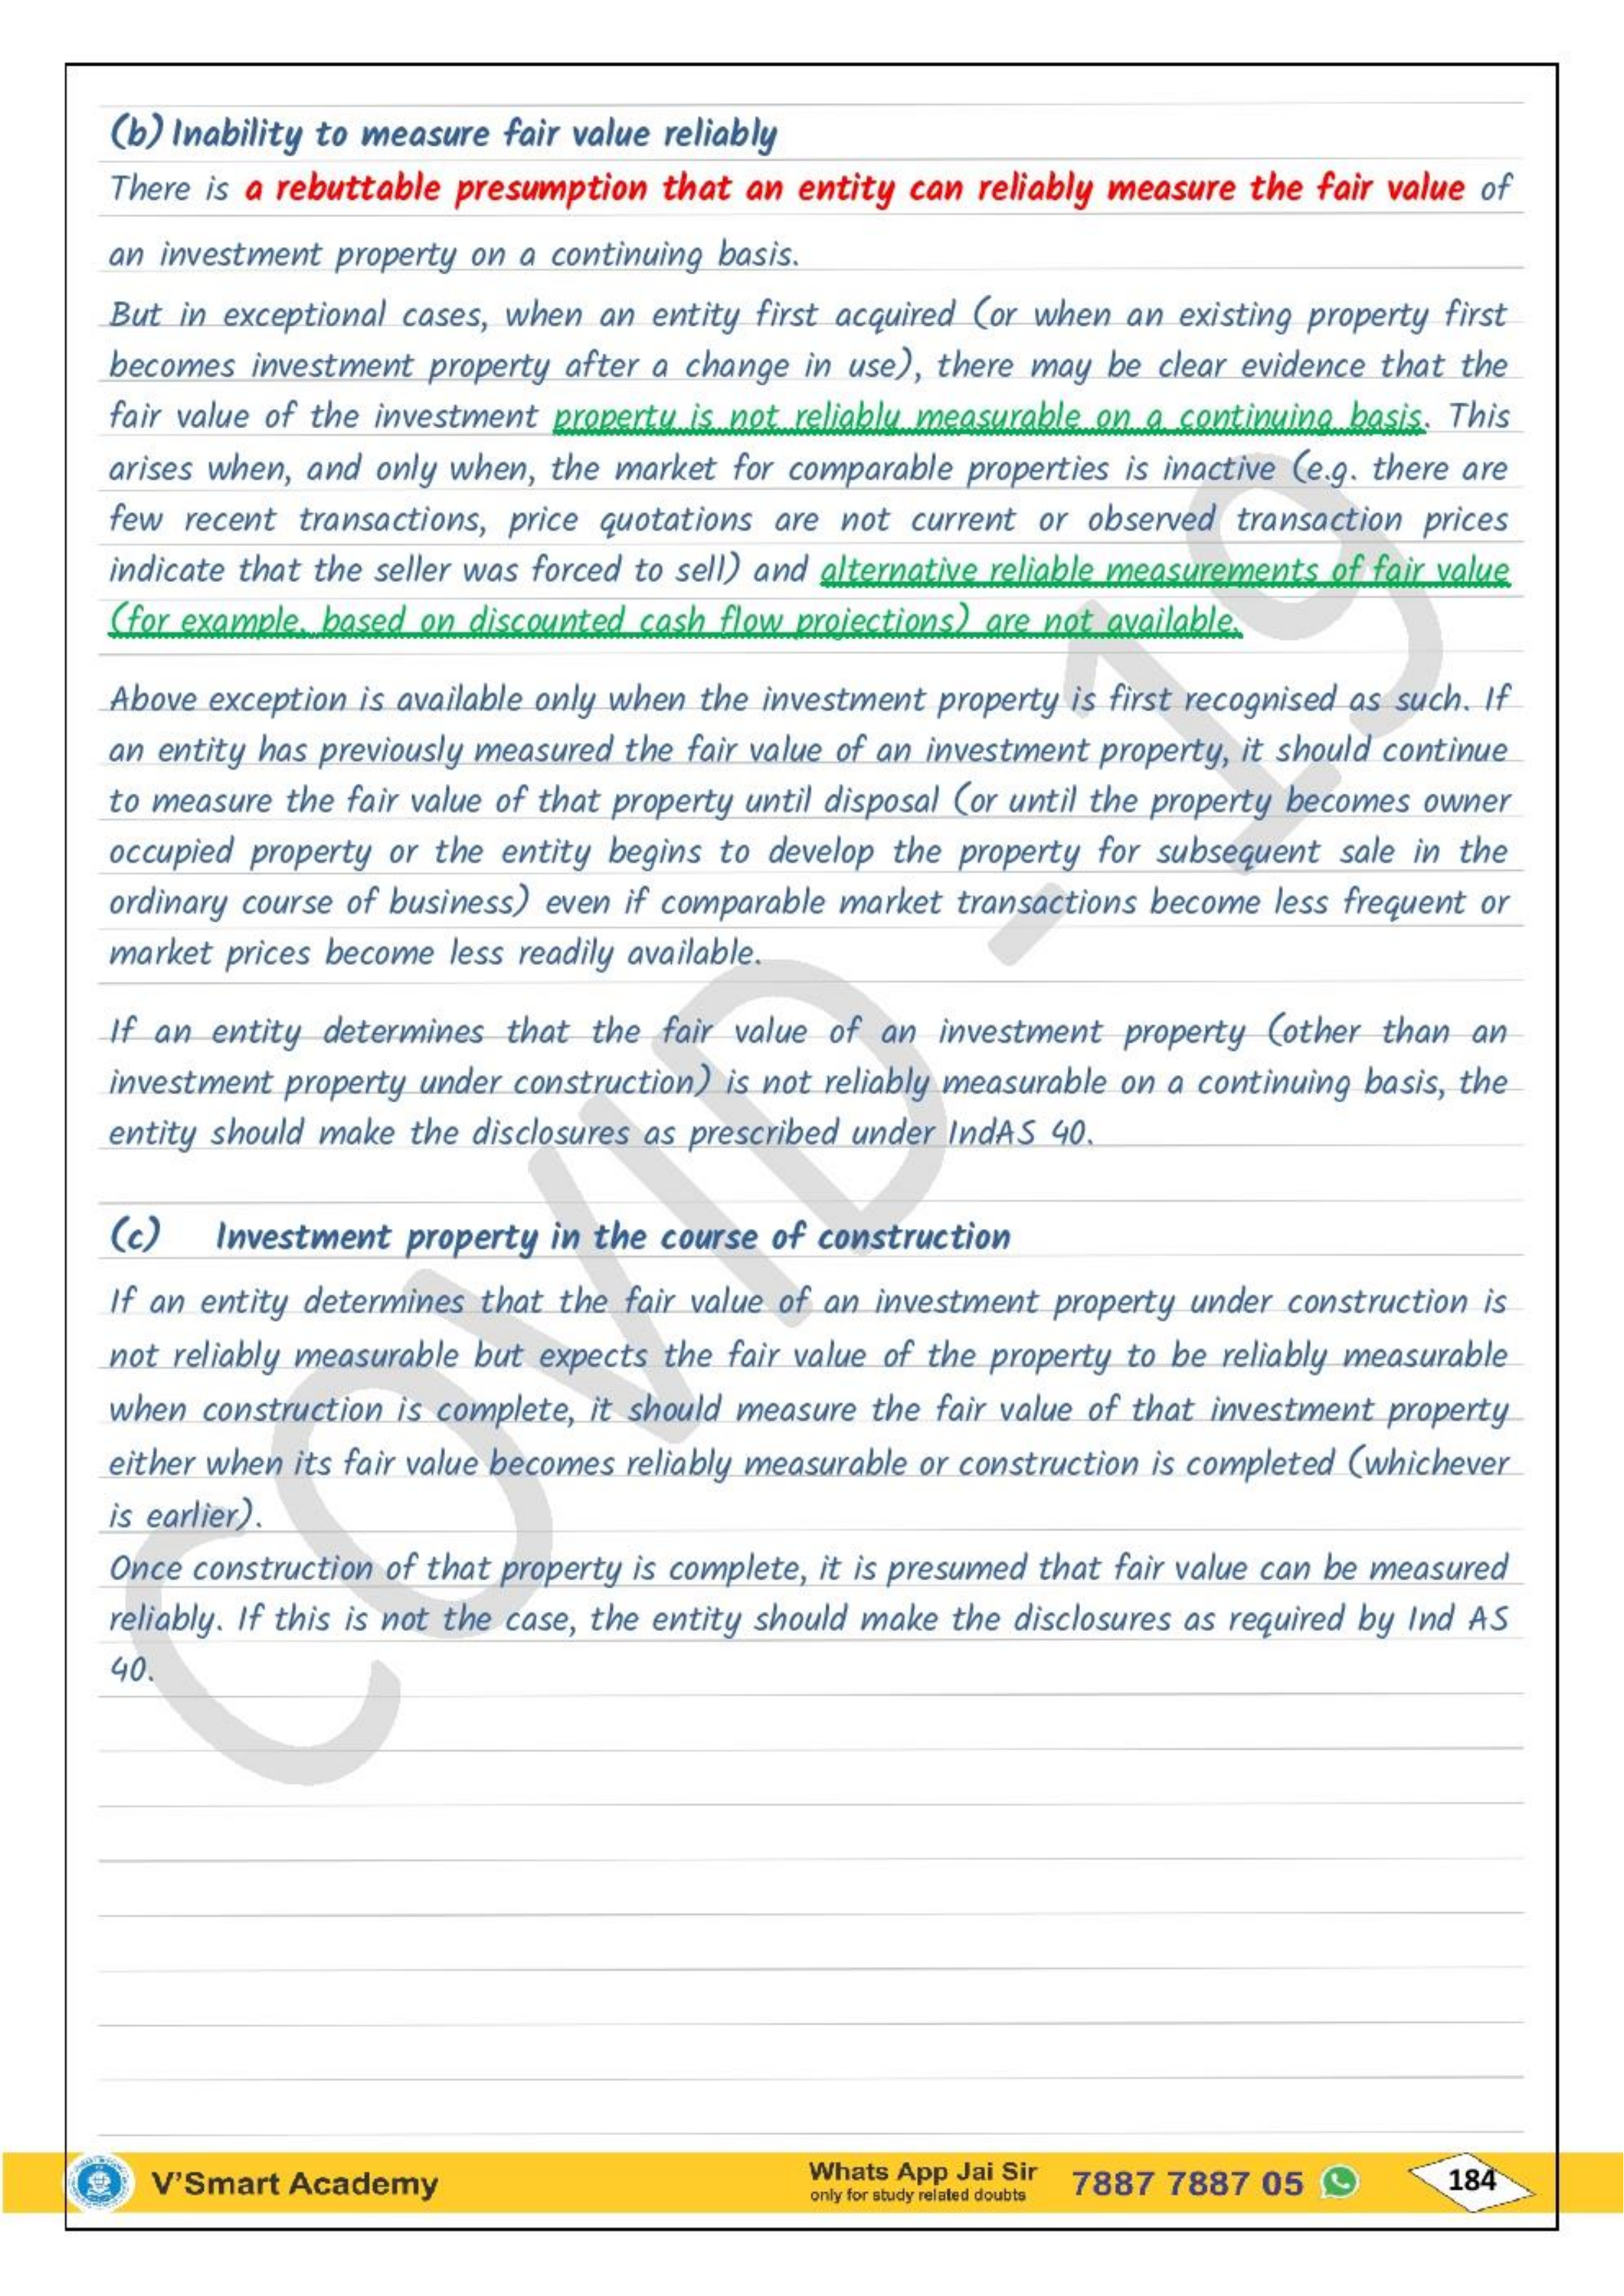 (b) Inability to measure fair value reliably
There is a rebuttable presumption that an entity can reliably measure the fair value of
an investment property on a continuing basis.
But in exceptional cases, when an entity first acquired (or when an existing property first
becomes investment property after a change in use), there may be clear evidence that the
fair value of the investment property is not reliably measurable on a continuing basis. This
arises when, and only when, the market for comparable properties is inactive (e.g. there are
few recent transactions, price quotations are not current or observed transaction prices
indicate that the seller was forced to sell) and alternative reliable measurements of fair value
(for example, based on discounted cash flow projections) are not available.
Above exception is available only when the investment property is first recognised as such. If
an entity has previously measured the fair value of an investment property, it should continue
to measure the fair value of that property until disposal (or until the property becomes owner
occupied property or the entity begins to develop the property for subsequent sale in the
ordinary course of business) even if comparable market transactions become less frequent or
market prices become less readily available.
If an entity determines that the fair value of an investment property (other than an
investment property under construction) is not reliably measurable on a continuing basis, the
entity should make the disclosures as prescribed under IndAS 40.
(c) Investment property in the course of construction
If an entity determines that the fair value of an investment property under construction is
not reliably measurable but expects the fair value of the property to be reliably measurable
when construction is complete, it should measure the fair value of that investment property
either when its fair value becomes reliably measurable or construction is completed (whichever
is earlier).
Once construction of that property is complete, it is presumed that fair value can be measured
reliably. If this is not the case, the entity should make the disclosures as required by Ind AS
40.
COVID - 19
V'Smart Academy
Whats App Jai Sir
only for study related doubts
7887 7887 05
184